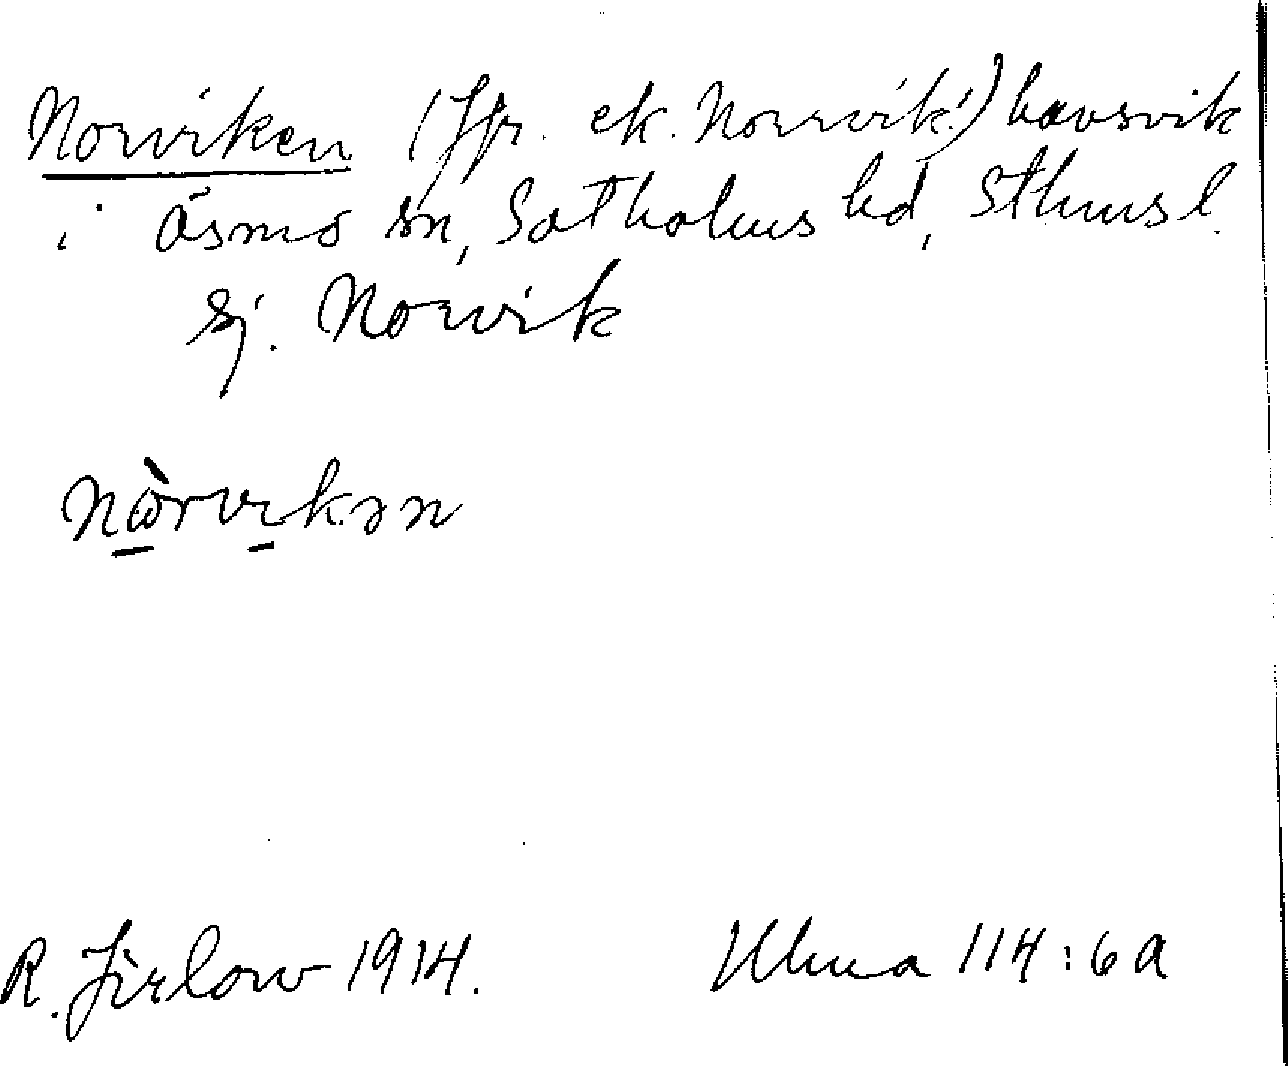 Norviken (Jfr. ek. Norrvik!) havsvik
i Ösmo sn, Sotholms hd, Sthms l.
sj. Norvik
Nòrvikən
R. Jirlow 1914. Ulma 114:6a